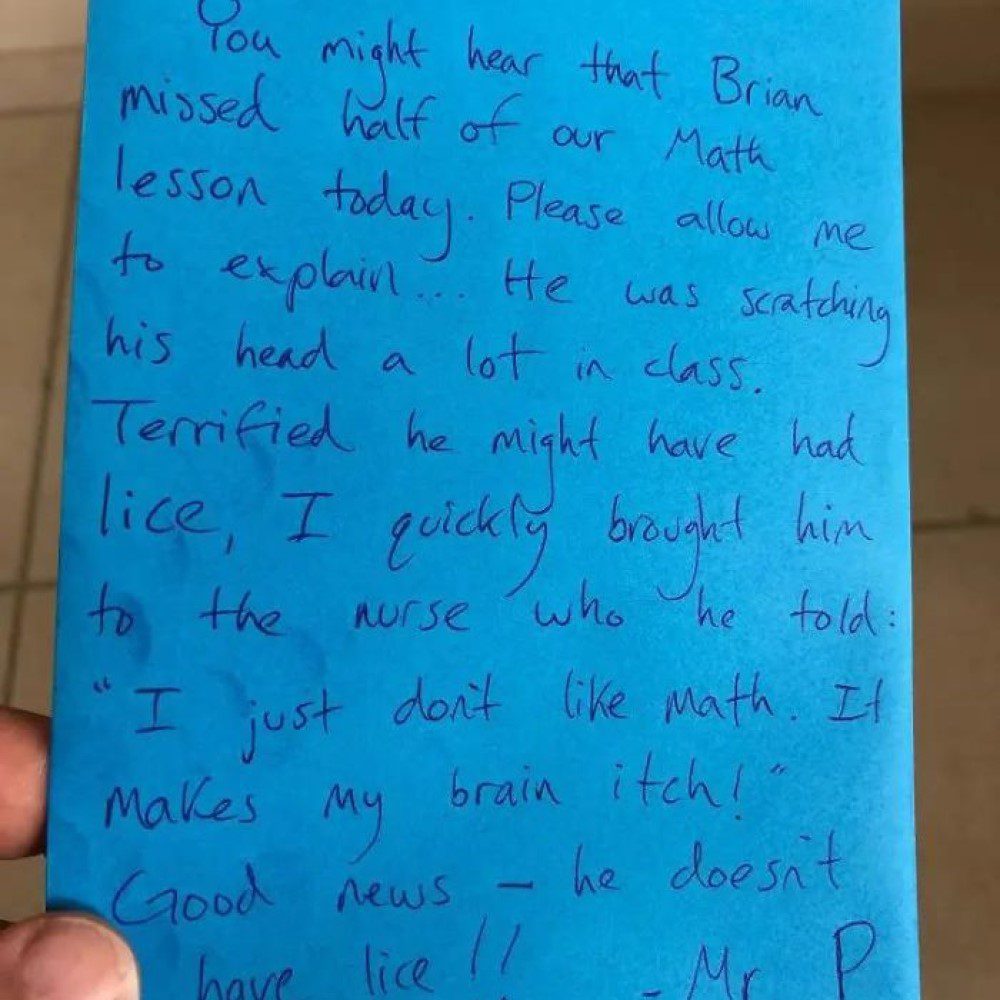 You might hear that Brian
missed half of our Math
lesson today. Please allow me
to explain... He was scratching
his head a lot in class.
Terrified he might have had
lice, I quickly brought him
to the nurse who he told:
"I just don't like math. It
makes my brain itch!"
Good news - he doesn't
have lice!! - Mr P